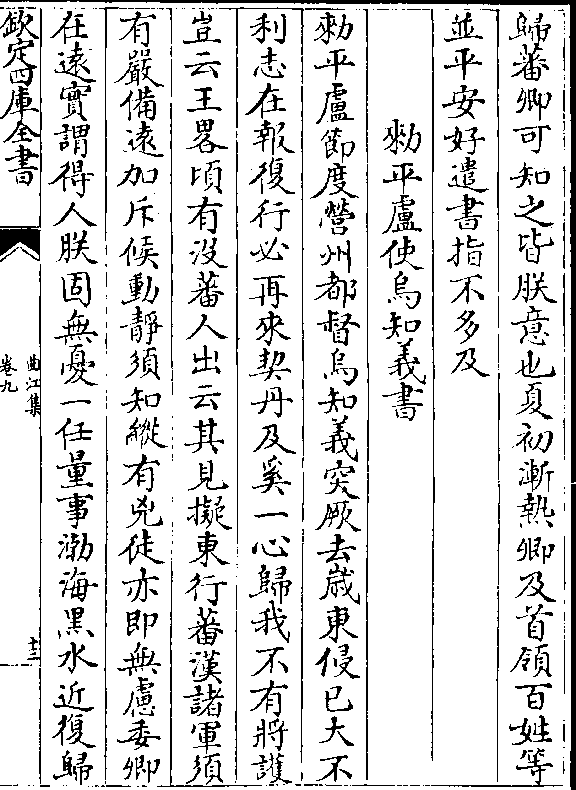 歸蕃卿可知之皆朕意也夏初漸熱卿及首領百姓等
並平安好遣書指不多及
勅平盧使烏知義書
勅平盧節度營州都督烏知義突厥去歲東侵已大不
利志在報復行必再來契丹及奚一心歸我不有將護
豈云王畧頃有沒蕃人出云其見擬東行蕃漢諸軍須
有嚴備遠加斥候動靜須知縱有兇徒亦即無慮委卿
在遠實謂得人朕固無憂一任量事渤海黑水近復歸
欽定四庫全書
曲江集
卷九
十三